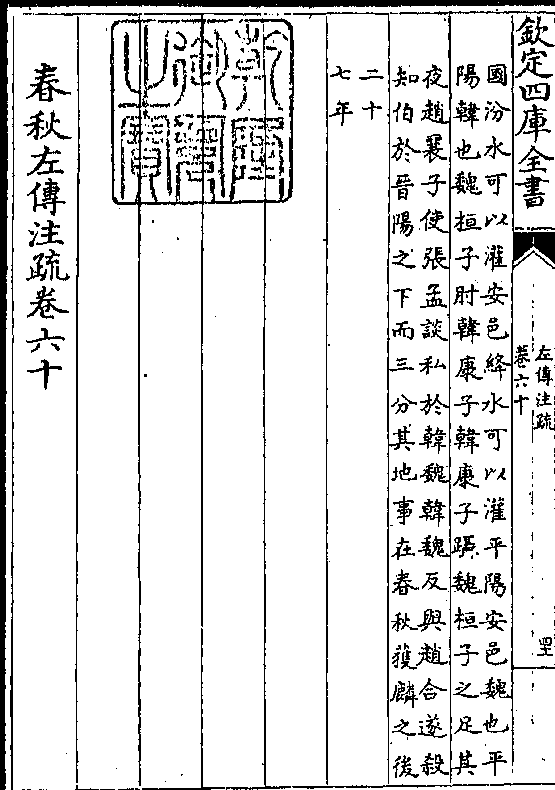 欽定四庫全書
左傳注疏
卷六十
國汾水可以灌安邑絳水可以灌平陽安邑魏也平
陽韓也魏桓子肘韓康子韓康子躡魏桓子之足其
夜趙襄子使張孟談私於韓魏韓魏反與趙合遂殺
知伯於晉陽之下而三分其地事在春秋獲麟之後
二十
七年
乾隆
御覽
之寶
春秋左傳注疏卷六十